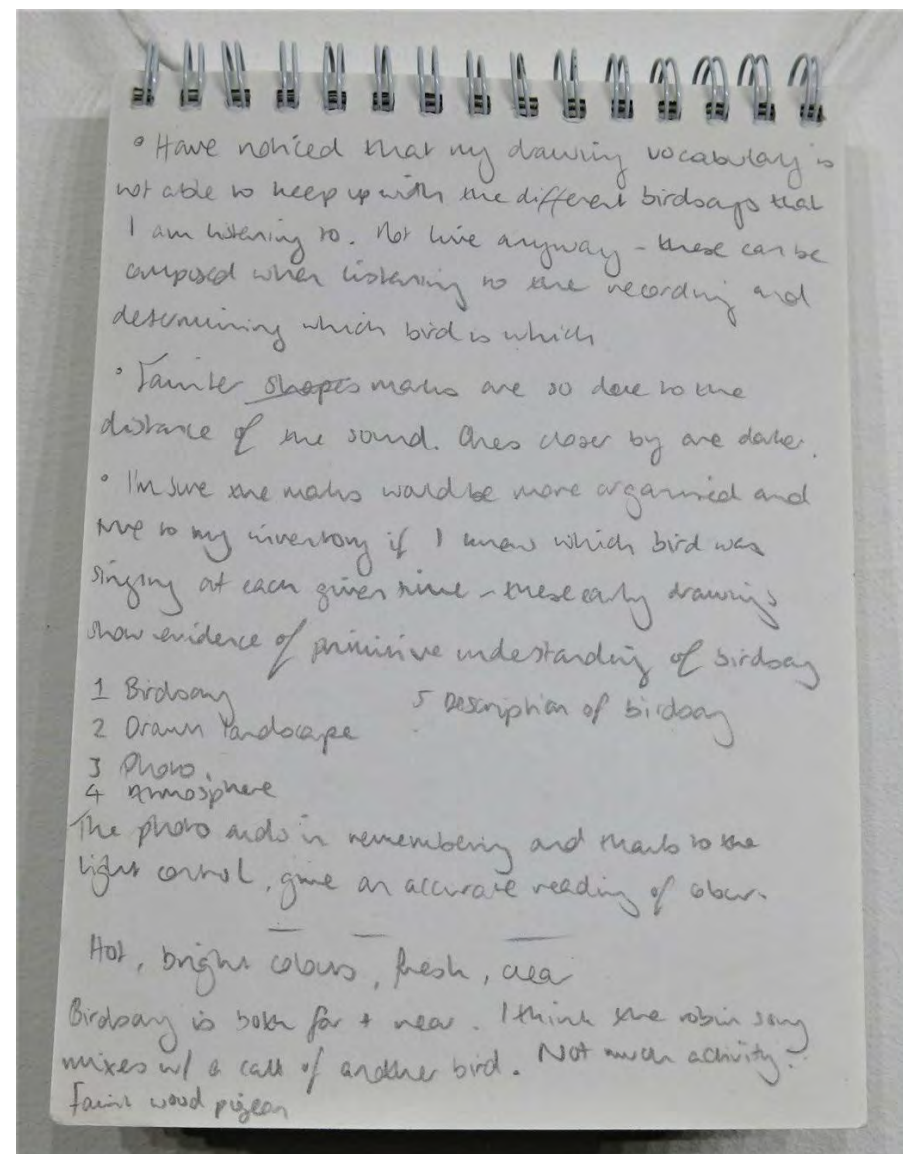 • Have noticed that my drawing vocabulary is
not able to keep up with the different birdsongs that
I am listening to. Not live anyway - these can be
composed when listening to the recording and
determining which bird is which
• Fainter shapes marks are so due to the
distance of the sound. Ones closer by are darker.
• I'm sure the marks would be more organised and
true to my inventory if I knew which bird was
singing at each given time - these early drawings
show evidence of primitive understanding of birdsong
1 Birdsong 5 Description of birdsong
2 Drawn landscape
3 Photo
4 Atmosphere
The photo aids in remembering and thanks to the
light control, give an accurate reading of colour.
Hot, bright colours, fresh, clear
Birdsong is both far + near. I think the robin song
mixes w/ a call of another bird. Not much activity.
Faint wood pigeon